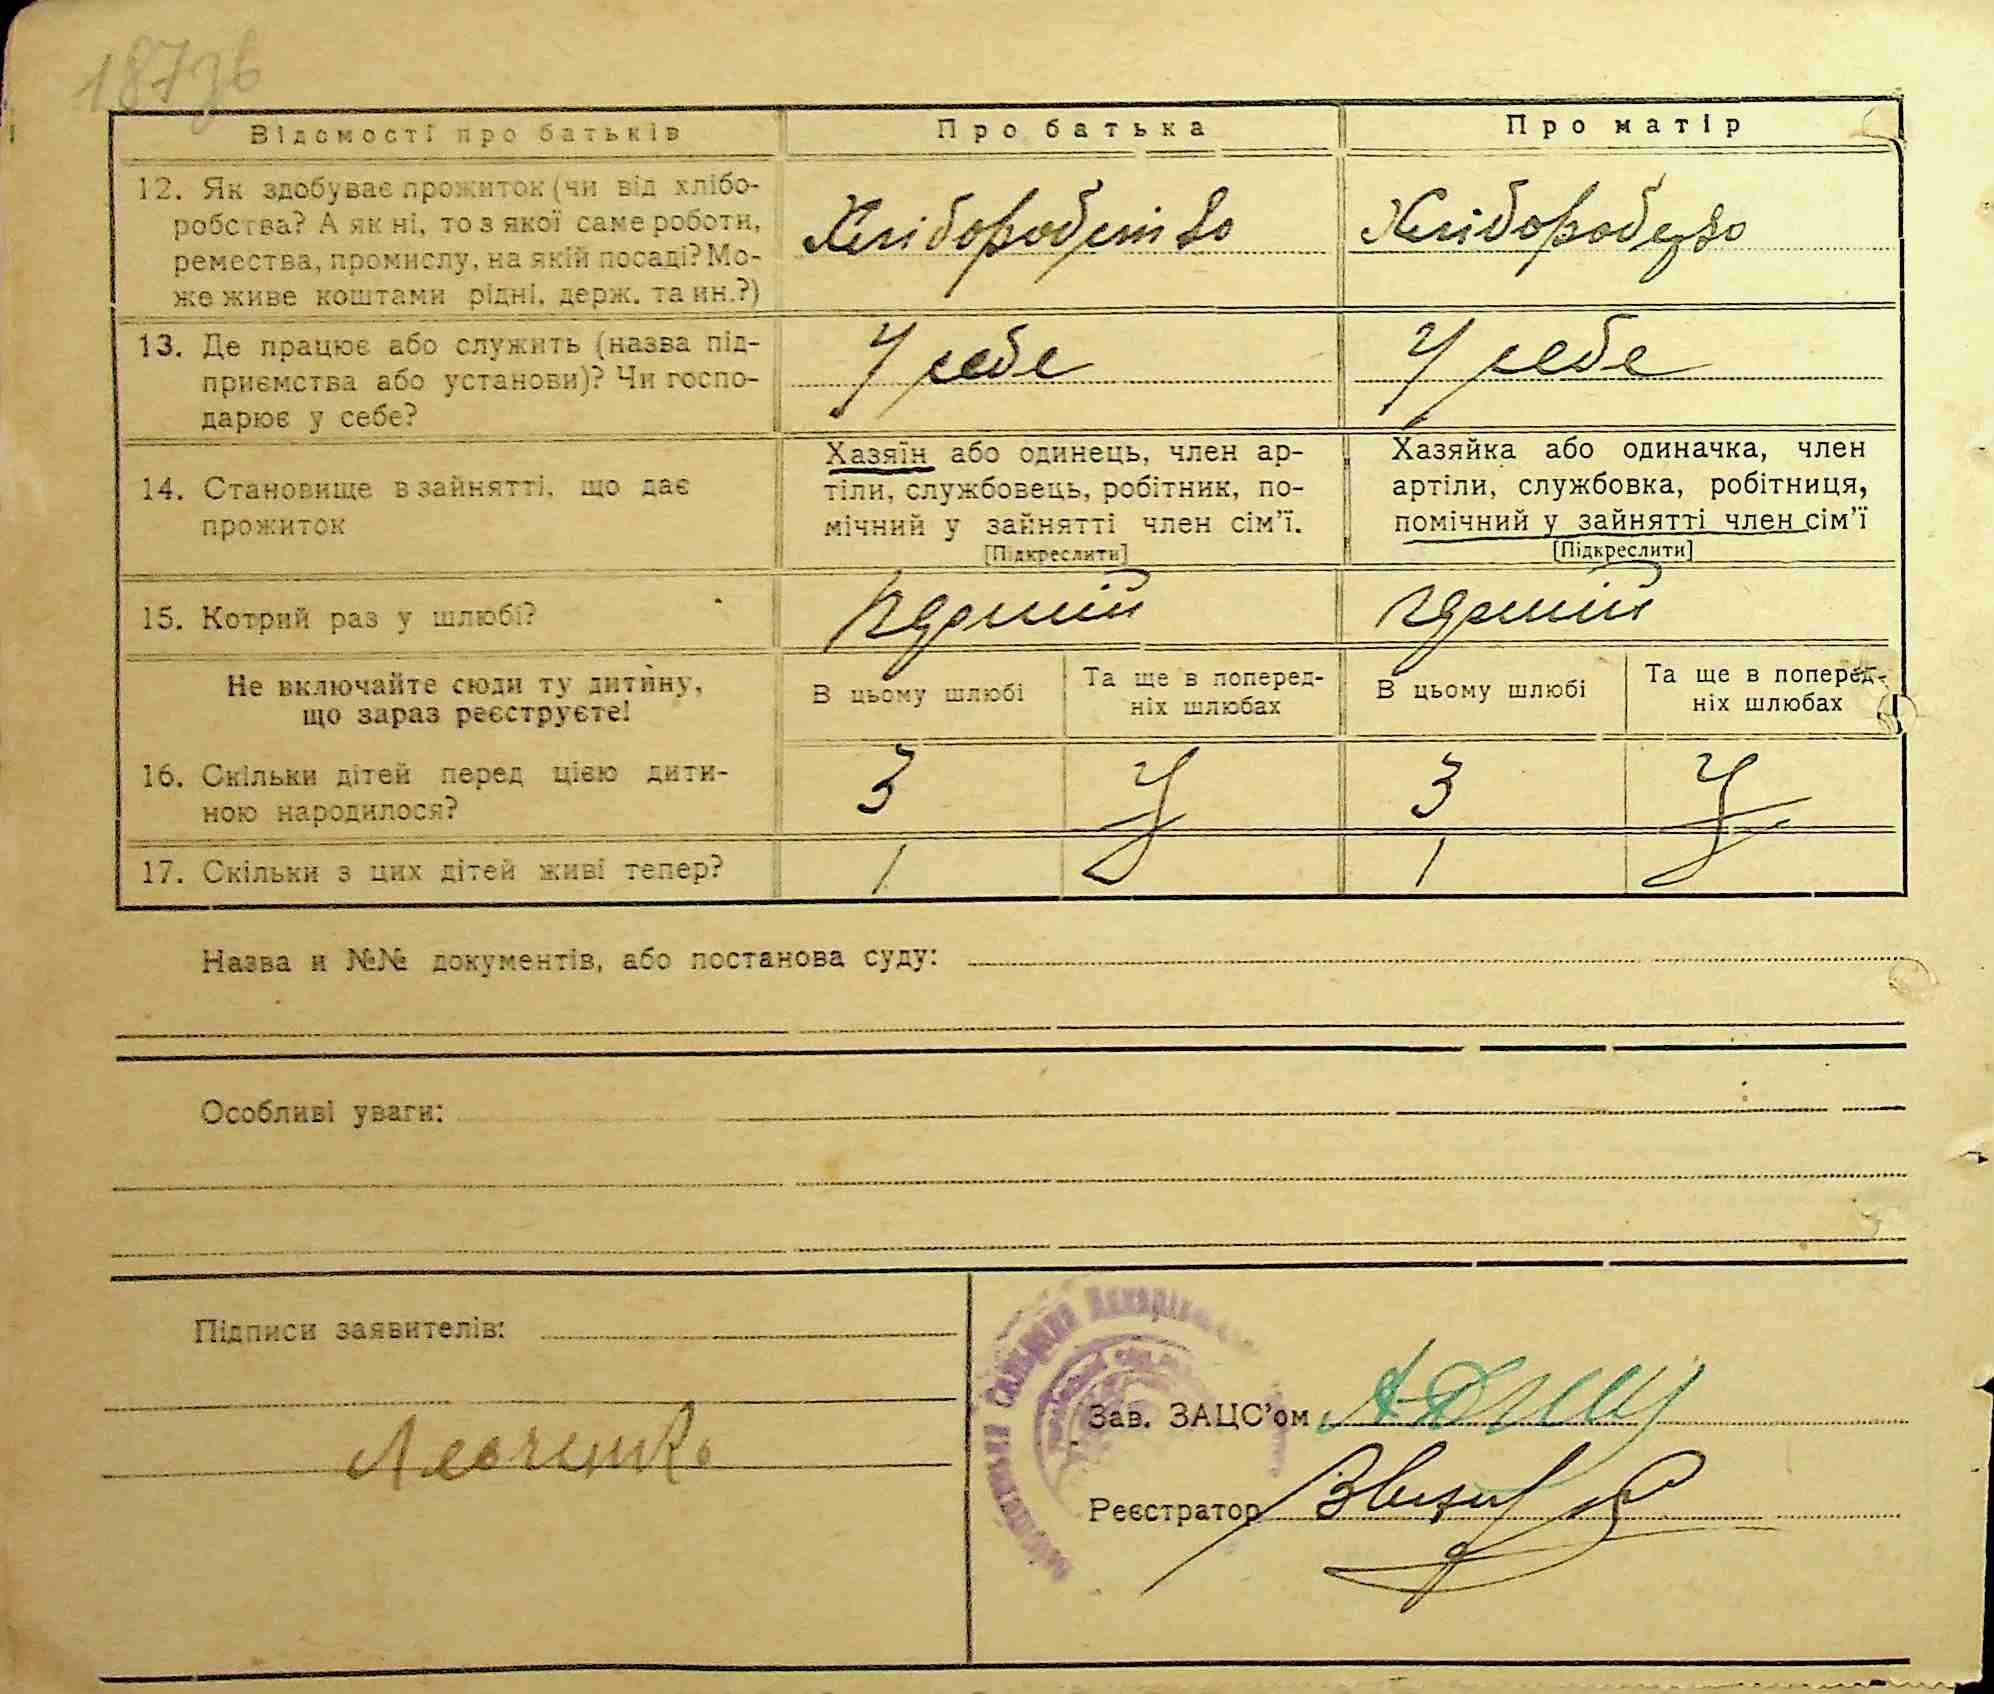 187зв
Відомості про батьків
Про батька
Про матір
12. Як здобуває прожиток (чи від хлібо-
робства? А як ні, то з якої саме роботи,
ремества, промислу, на якій посаді? Мо-
же живе коштами рідні, держ. та ин.?)
Хліборобство
Хліборобство
13. Де працює або служить (назва під-
приємства або установи)? Чи госпо-
дарює у себе?
У себе
У себе
14. Становище в зайнятті, що дає
прожиток
Хазяїн або одинець, член ар-
тіли, службовець, робітник, по-
мічний у зайнятті член сім'ї.
[Підкреслити]
Хазяйка або одиначка, член
артіли, службовка, робітниця,
помічний у зайнятті член сім'ї
[Підкреслити]
15. Котрий раз у шлюбі?
Не включайте сюди ту дитину,
що зараз реєструєте!
В цьому шлюбі
Та ще в поперед-
ніх шлюбах
В цьому шлюбі
Та ще в поперед-
ніх шлюбах
16. Скільки дітей перед цією дити-
ною народилося?
3
3
17. Скільки з цих дітей живі тепер?
1
1
Назва и №№ документів, або постанова суду:
Особливі уваги:
Підписи заявителів:
Зав. ЗАЦС'ом
Реєстратор